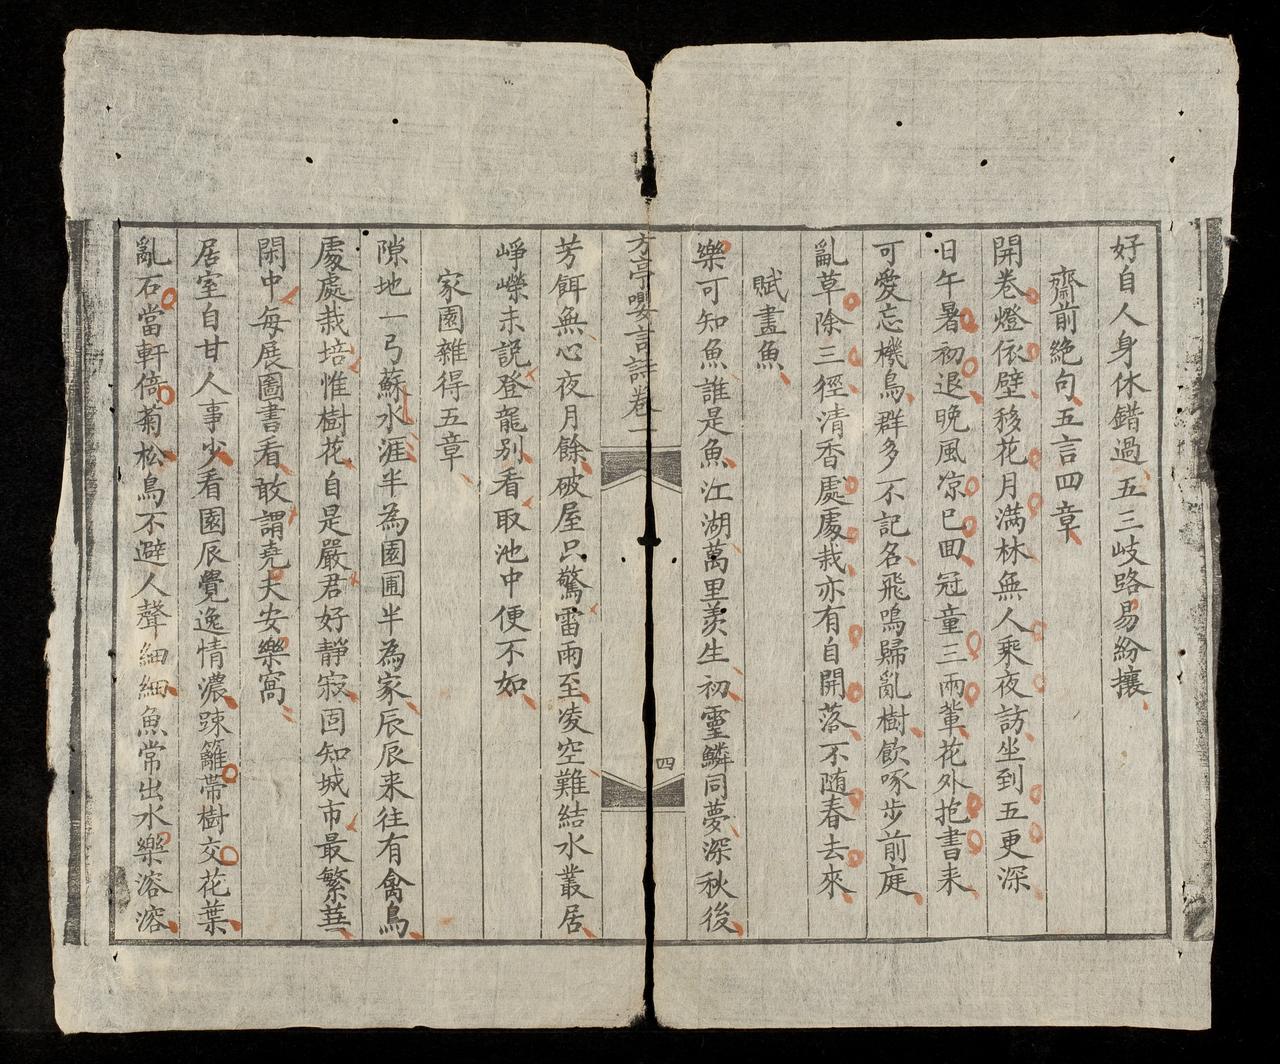 好自人身休錯過五三岐路易紛攘
齋前絶句五言四章
開卷燈依壁移花月满林無人乘夜訪坐到五更深
日午暑初退晚風凉已囬冠童三兩輩花外抱書来
可愛忘機鳥群多不記名飛鳴歸亂樹飲啄步前庭
亂草除三徑清香處處栽亦有自開落不随春去來
賦畫魚
樂可知魚誰是魚江湖萬里羨生初靈鱗同夢深秋後
方亭嚶言詩卷一
四
芳餌無心夜月餘破屋只驚雷雨至凌空難結水叢居
崢嶸未説登龍别看取池中便不如
家園雜得五章
隙地一弓蘇水涯半為園圃半為家辰辰来往有禽鳥
處處栽培惟樹花自是嚴君好靜寂固知城市最繁華
閑中每展圖書看敢謂堯夫安樂窩
居室自甘人事少看園辰覺逸情濃踈籬帶樹交花葉
亂石當軒倚菊松鳥不避人聲細細魚常出水樂溶溶